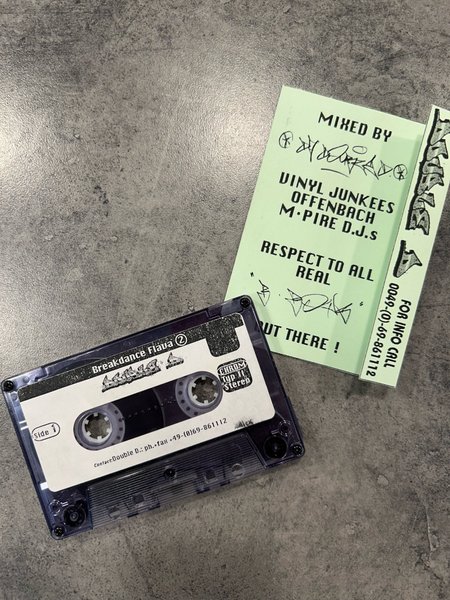 MIXED BY
VINYL JUNKEES
OFFENBACH
M•PIRE D.J.s
RESPECT TO ALL
REAL
OUT THERE !
DOUBLE D
FOR INFO CALL
0049-(0)-69-861112
Breakdance Flava 2
DOUBLE D
CHROM
Typ II
Stereo
Side 1
Contact Double D.: ph.+fax +49-(0)69-861112